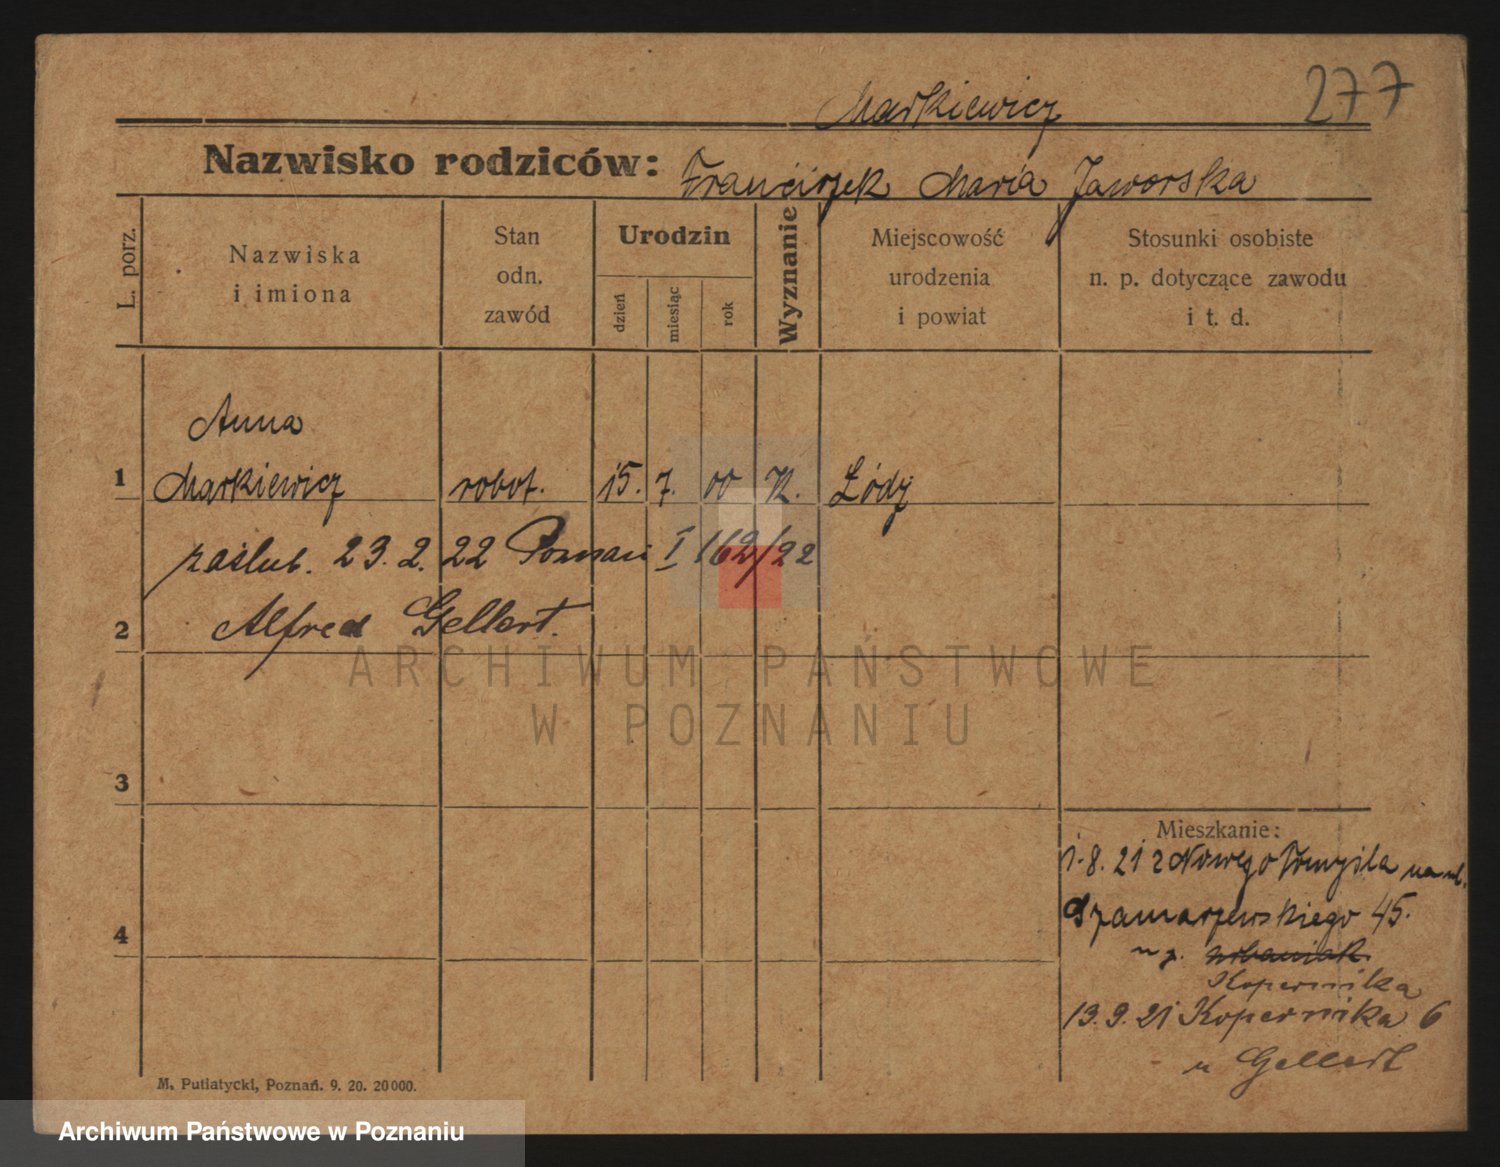 277
Markiewicz
Nazwisko rodziców: Franciszek Maria Jaworska
L. porz.
Nazwiska
i imiona
Stan
odn.
zawód
Urodzin
dzień
miesiąc
rok
Wyznanie
Miejscowość
urodzenia
i powiat
Stosunki osobiste
n. p. dotyczące zawodu
i t. d.
Anna
1 Markiewicz robot. 15. 7. 00 K. Łódź
zaślub. 23. 2. 22 Poznań I 162/22
2 Alfred Gellert.
ARCHIWUM PAŃSTWOWE
W POZNANIU
3
Mieszkanie:
1. 8. 21 z Nowego Tomyśla na ul.
Szamarzewskiego 45.
4
Kopernika
13. 9. 21 Kopernika 6
u Gellert
M. Putiatycki, Poznań. 9. 20. 20000.
Archiwum Państwowe w Poznaniu